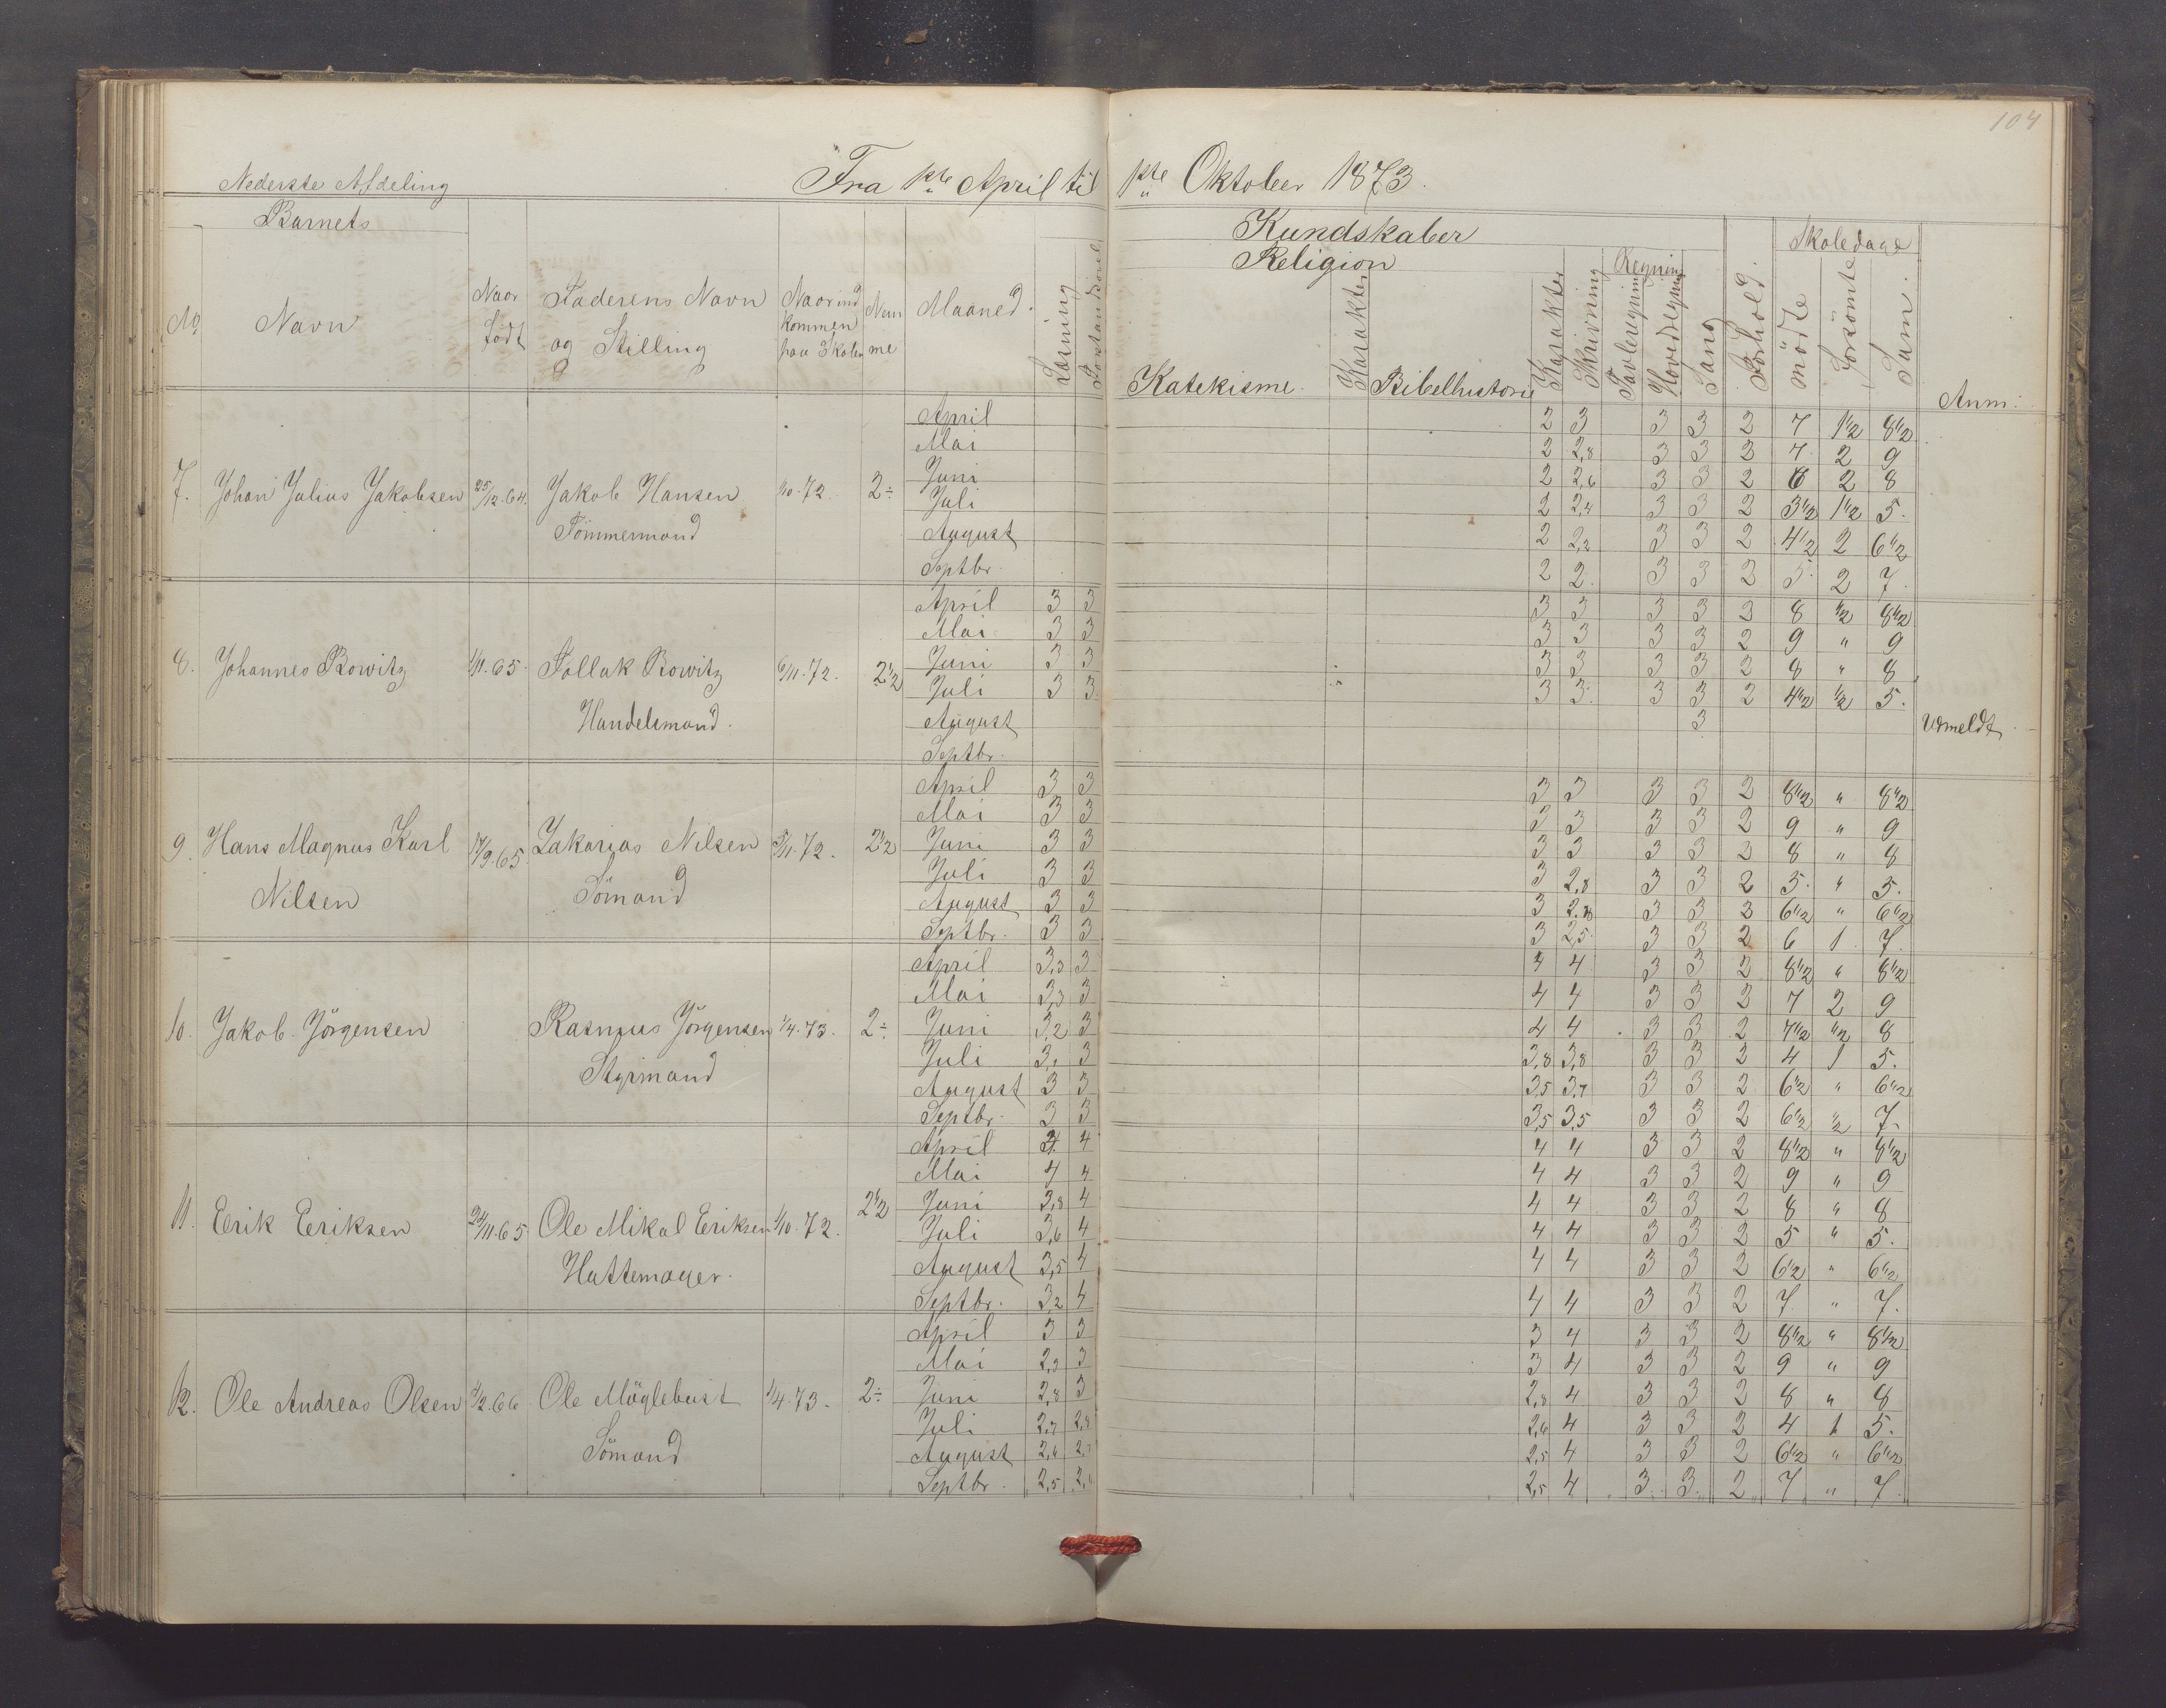 104
Nederste Afdeling
Fra 1ste April til 1ste Oktober 1873.
Barnets
Kundskaber
Skoledage
Religion
Regning
No
Navn
Naar født
Faderens Navn og Stilling
Naar ind kommen paa Skolen
Num me
Maaned.
Læsning
Forstandsøvel
Katekisme.
Karakter
Bibelhistorie
Karakter
Skrivning
Tavleregning
Hovedregning
Sang
Forhold.
mødte
Forsömte
Sum.
Anm:
7. Johan Julius Jakobsen 25/12.64. Jakob Hansen Tömmermand 1/10.72. 2÷
April 2 3 3 3 2 7 1 1/2 8 1/2
Mai 2 2,8 3 3 2 7 2 9
Juni 2 2,6 3 3 2 6 2 8
Juli 2 2,4 3 3 2 3 1/2 1 1/2 5.
August 2 2,2 3 3 2 4 1/2 2 6 1/2
Septbr. 2 2. 3 3 2 5. 2 7.
8. Johannes Rowitz 1/11.65. Tollak Rowitz Handelsmand. 6/11.72. 2 1/2
April 3 3 3 3 3 3 2 8 1/2 8 1/2
Mai 3 3 3 3 3 3 2 9 " 9
Juni 3 3 3 3 3 3 2 8 " 8
Juli 3 3 3 3. 3 3 2 4 1/2 1/2 5.
August 3 Udmeldt
Septbr.
9. Hans Magnus Karl Nilsen 17/9.65 Zakarias Nilsen Sömand 5/11.72. 2 1/2
April 3 3 3 3 3 3 2 8 1/2 " 8 1/2
Mai 3 3 3 3 3 3 2 9 " 9
Juni 3 3 3 3 3 3 2 8 " 8
Juli 3 3 3 2,8 3 3 2 5. " 5.
August 3 3 3 3 3 2 6 1/2 " 6 1/2
Septbr. 3 3 3 2,5. 3 3 2 6 1 7.
10. Jakob Jörgensen Rasmus Jörgensen Styrmand 1/4.73. 2÷
April 3,3 3 4 4 3 3 2 8 1/2 " 8 1/2
Mai 3,3 3 4 4 3 3 2 7 2 9
Juni 3,2 3 4 4 3 3 2 7 1/2 1/2 8
Juli 3,1 3 3,8 3,8 3 3 2 4 1 5.
August 3 3 3,5 3,7 3 3 2 6 1/2 " 6 1/2
Septbr. 3 3 3,5 3,5 3 3 2 6 1/2 1/2 7.
11. Eerik Eeriksen 24/11.65 Ole Mikal Eeriksen Hattemager. 1/10.72. 2 1/2
April 4 4 4 4 3 3 2 8 1/2 " 8 1/2
Mai 4 4 4 4 3 3 2 9 " 9
Juni 3,8 4 4 4 3 3 2 8 " 8
Juli 3,6 4 4 4 3 3 2 5 " 5.
August 3,5 4 4 4 3 3 2 6 1/2 " 6 1/2
Septbr. 3,2 4 4 4 3 3 2 7 " 7.
12. Ole Andreas Olsen 3/2.66 Ole Möglebust Sömand 1/4.73. 2÷
April 3 3 3 4 3 3 2 8 1/2 " 8 1/2
Mai 2,9 3 3 4 3 3 2 9 " 9
Juni 2,8 3 2,8 4 3 3 2 8 " 8
Juli 2,7 2,8 2,6 4 3 3 2 4 1 5.
August 2,6 2,7 2,5 4 3 3 2 6 1/2 " 6 1/2
Septbr. 2,5 2,5 4 3 3. 2 7 " 7.